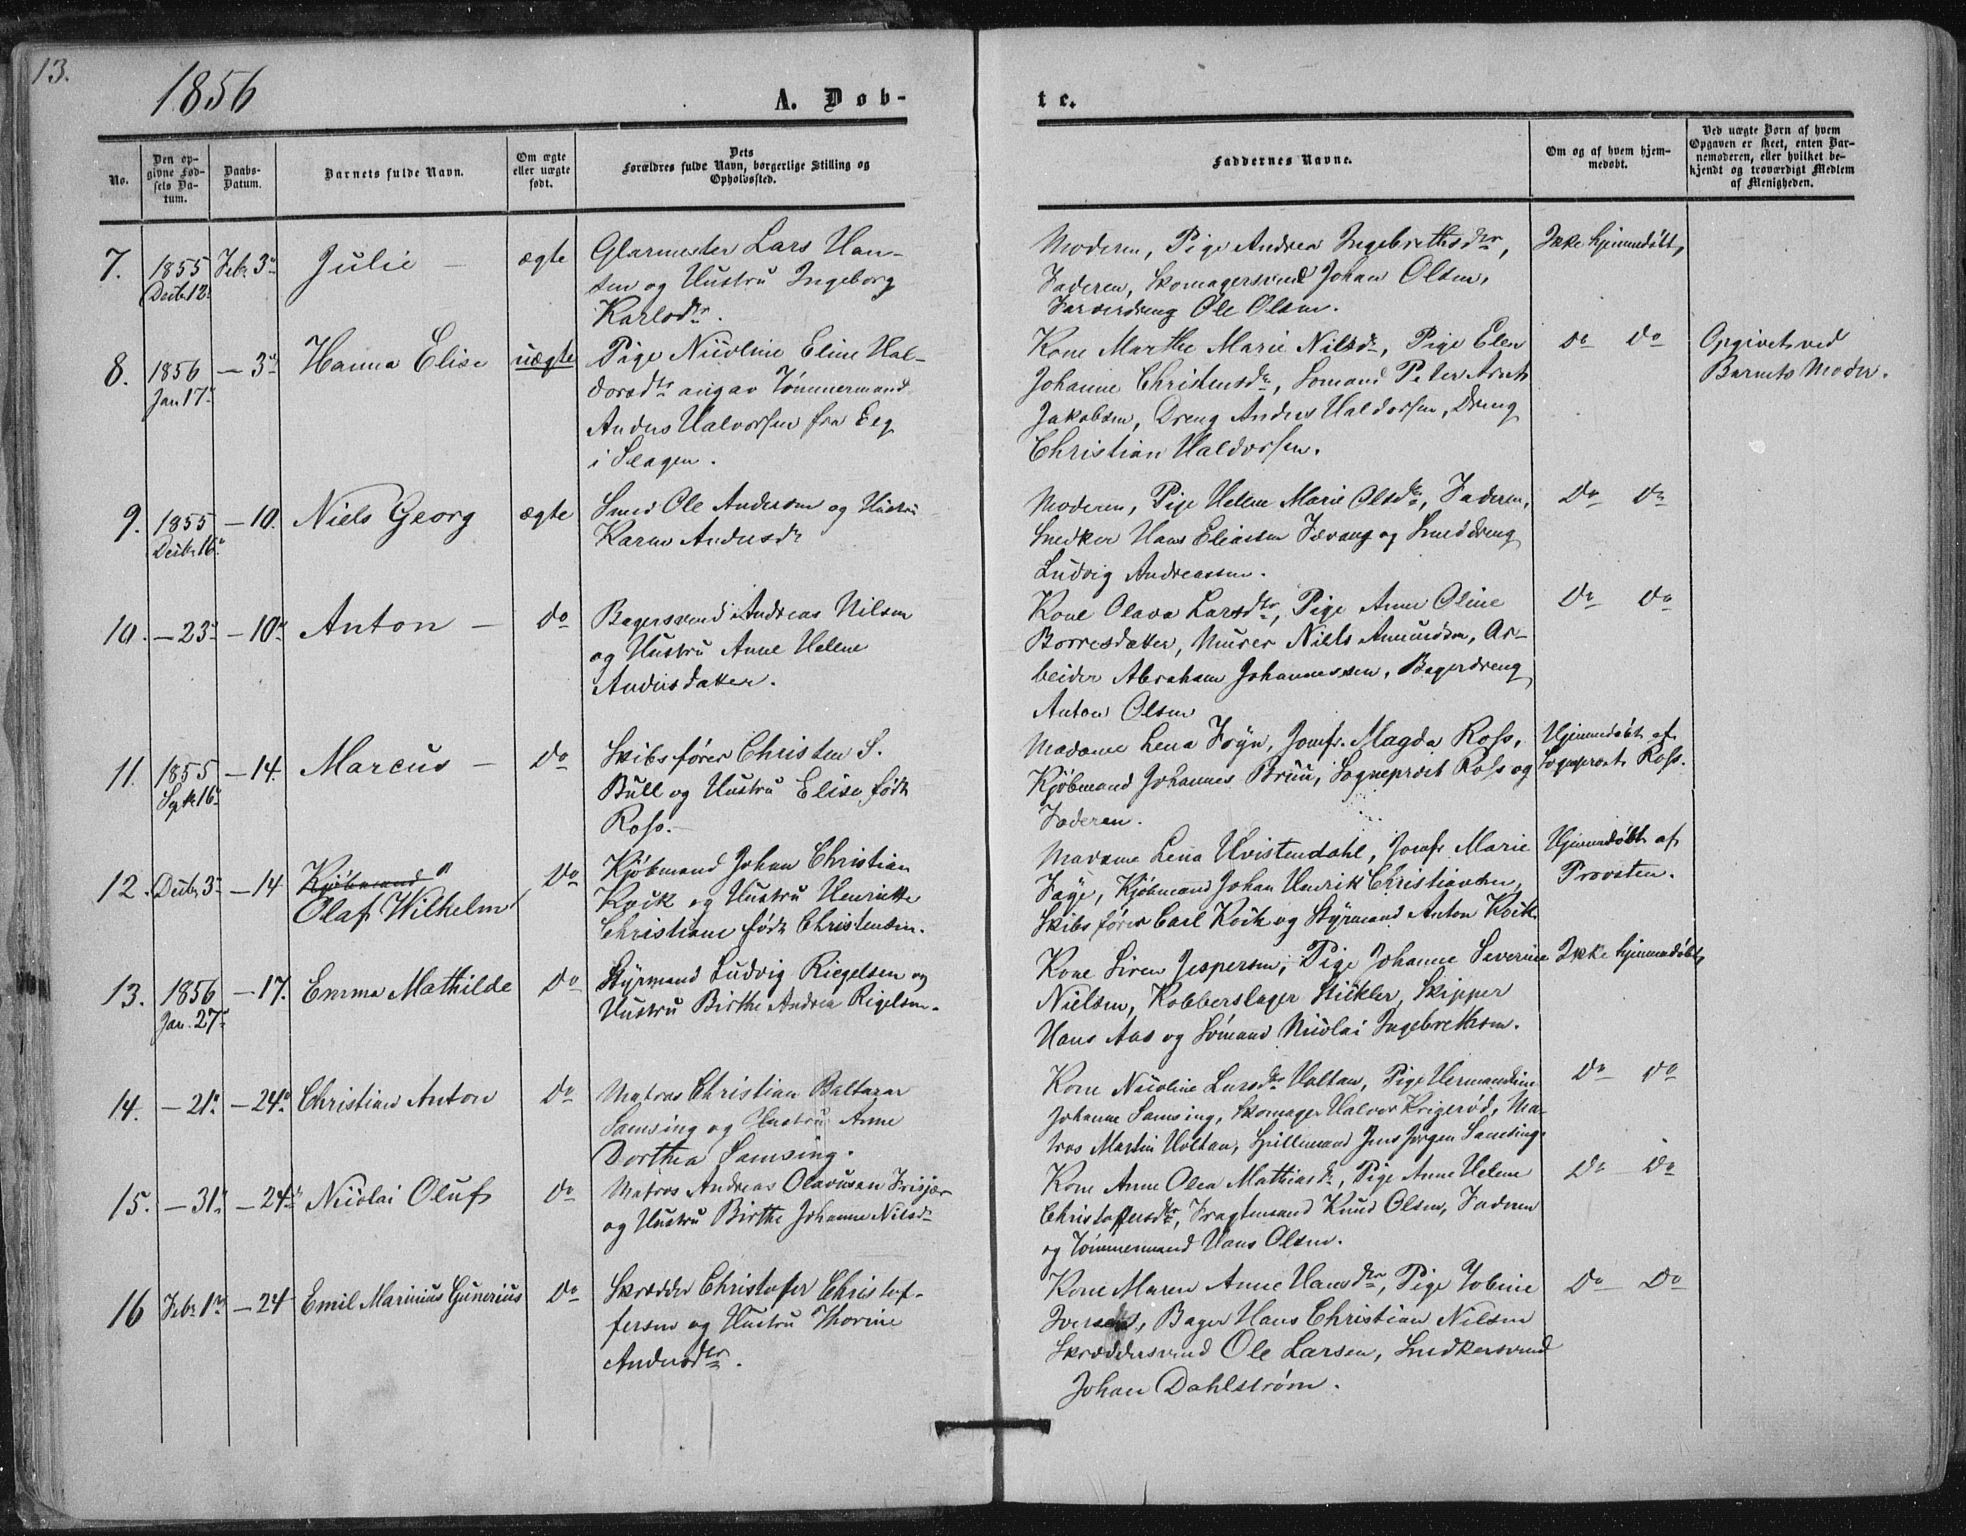 13.
1856
A. Døb-
te.
No.
Den op-
givne Fød-
sels Da-
tum.
Daabs-
Datum.
Barnets fulde Navn.
Om ægte
eller uægte
født.
Dets
Forældres fulde Navn, borgerlige Stilling og
Opholdssted.
Faddernes Navne.
Om og af hvem hjem-
medøbt.
Ved uægte Børn af hvem
Opgaven er skeet, enten Bar-
nemoderen, eller hvilket be-
kjendt og troværdigt Medlem
af Menigheden.
7.
1855
Decbr 12.
Febr 3.
Julie —
ægte
Glarmester Lars Han-
sen og Hustru Ingeborg
Karlsdr.
Moderen, Pige Andrea Ingebrethsdtr,
Faderen, Skomagersvend Johan Olsen,
Farverdreng Ole Olsen.
Ikke hjemmedøbt,
8.
1856
Jan. 17.
— 3.
Hanna Elise
uægte
Pige Nicoline Eline Hal-
dorsdtr angav Tømmermand
Anders Halvorsen fra Eeg
i Slagen.
Kone Marthe Marie Nilsdr, Pige Elen
Johanne Christensdr, Sømand Peter Arnt
Jakobsen, Dreng Anders Haldorsen, Dreng
Christian Haldorsen.
do do
Opgivet ved
Barnets Moder.
9.
1855
Decbr 16.
— 10.
Niels Georg
ægte
Smed Ole Andersen og Hustru
Karen Andersdr
Moderen, Pige Helene Marie Olsdr, Faderen,
Snedker Hans Eliassen Jævang og Smeddreng
Ludvig Andreassen.
Do Do
10.
— 23.
— 10.
Anton —
do
Bagersvend Andreas Nilsen
og Hustru Anne Helene
Andersdatter.
Kone Olava Larsdtr, Pige Anne Oline
Borresdatter, Murer Niels Amundsen, Ar-
beider Abraham Johannessen, Bagerdreng
Anton Olsen
Do Do
11.
1855
Septbr 16.
— 14.
Marcus —
Do
Skibsfører Christen S.
Bull og Hustru Elise født
Ross.
Madame Lena Foyn, Jomfr. Magda Ross,
Kjøbmand Johannes Bruu, Sogneprest Ross og
Faderen.
Hjemmedøbt af
Sogneprest Ross.
12.
Decbr 3.
— 14
Kjøbmand
Olaf Wilhelm
Do
Kjøbmand Johan Christian
Kvik og Hustru Henriette
Christiane født Christensen.
Madame Lena Hvistendahl, Jomfr Marie
Faye, Kjøbmand Johan Henrik Christiansen,
Skibsfører Carl Kvik og Styrmand Anton Kvik.
Hjemmedøbt af
Provsten.
13.
1856
Jan. 27.
— 17.
Emma Mathilde
Do
Styrmand Ludvig Riegelsen og
Hustru Birthe Andrea Rigelsen.
Kone Siren Jespersen, Pige Johanne Severine
Nielsen, Kobberslager Stickler, Skipper
Hans Aas og Sømand Nicolai Ingebrethsen.
Ikke hjemmedøbt,
14.
— 21.
— 24.
Christian Anton
Do
Matros Christian Baltazar
Samsing og Hustru Anne
Dorthea Samsing.
Kone Nicoline Larsdtr Holtan, Pige Hermandine
Johanne Samsing, Skomager Halvor Krigerød, Ma-
tros Martin Holtan, Spillemand Jens Jørgen Samsing.
Do Do
15.
— 31.
— 24.
Nicolai Oluf
Do
Matros Andreas Olavusen Frisjær
og Hustru Birthe Johanne Nilsdr
Kone Anne Olea Mathiasdr, Pige Anne Helene
Christofersdtr, Fragtemand Knud Olsen, Faderen
og Tømmermand Hans Olsen.
Do Do
16
Febr 1ste
— 24
Emil Marinius Gunerius
Do
Skrædder Christoffer Christof-
fersen og Hustru Thorine
Andersdtr.
Kone Maren Anne Hansdtr, Pige Tobine
Iversens, Bager Hans Christian Nilsen
Skræddersvend Ole Larsen, Snedkersvend
Johan Dahlstrøm.
Do Do